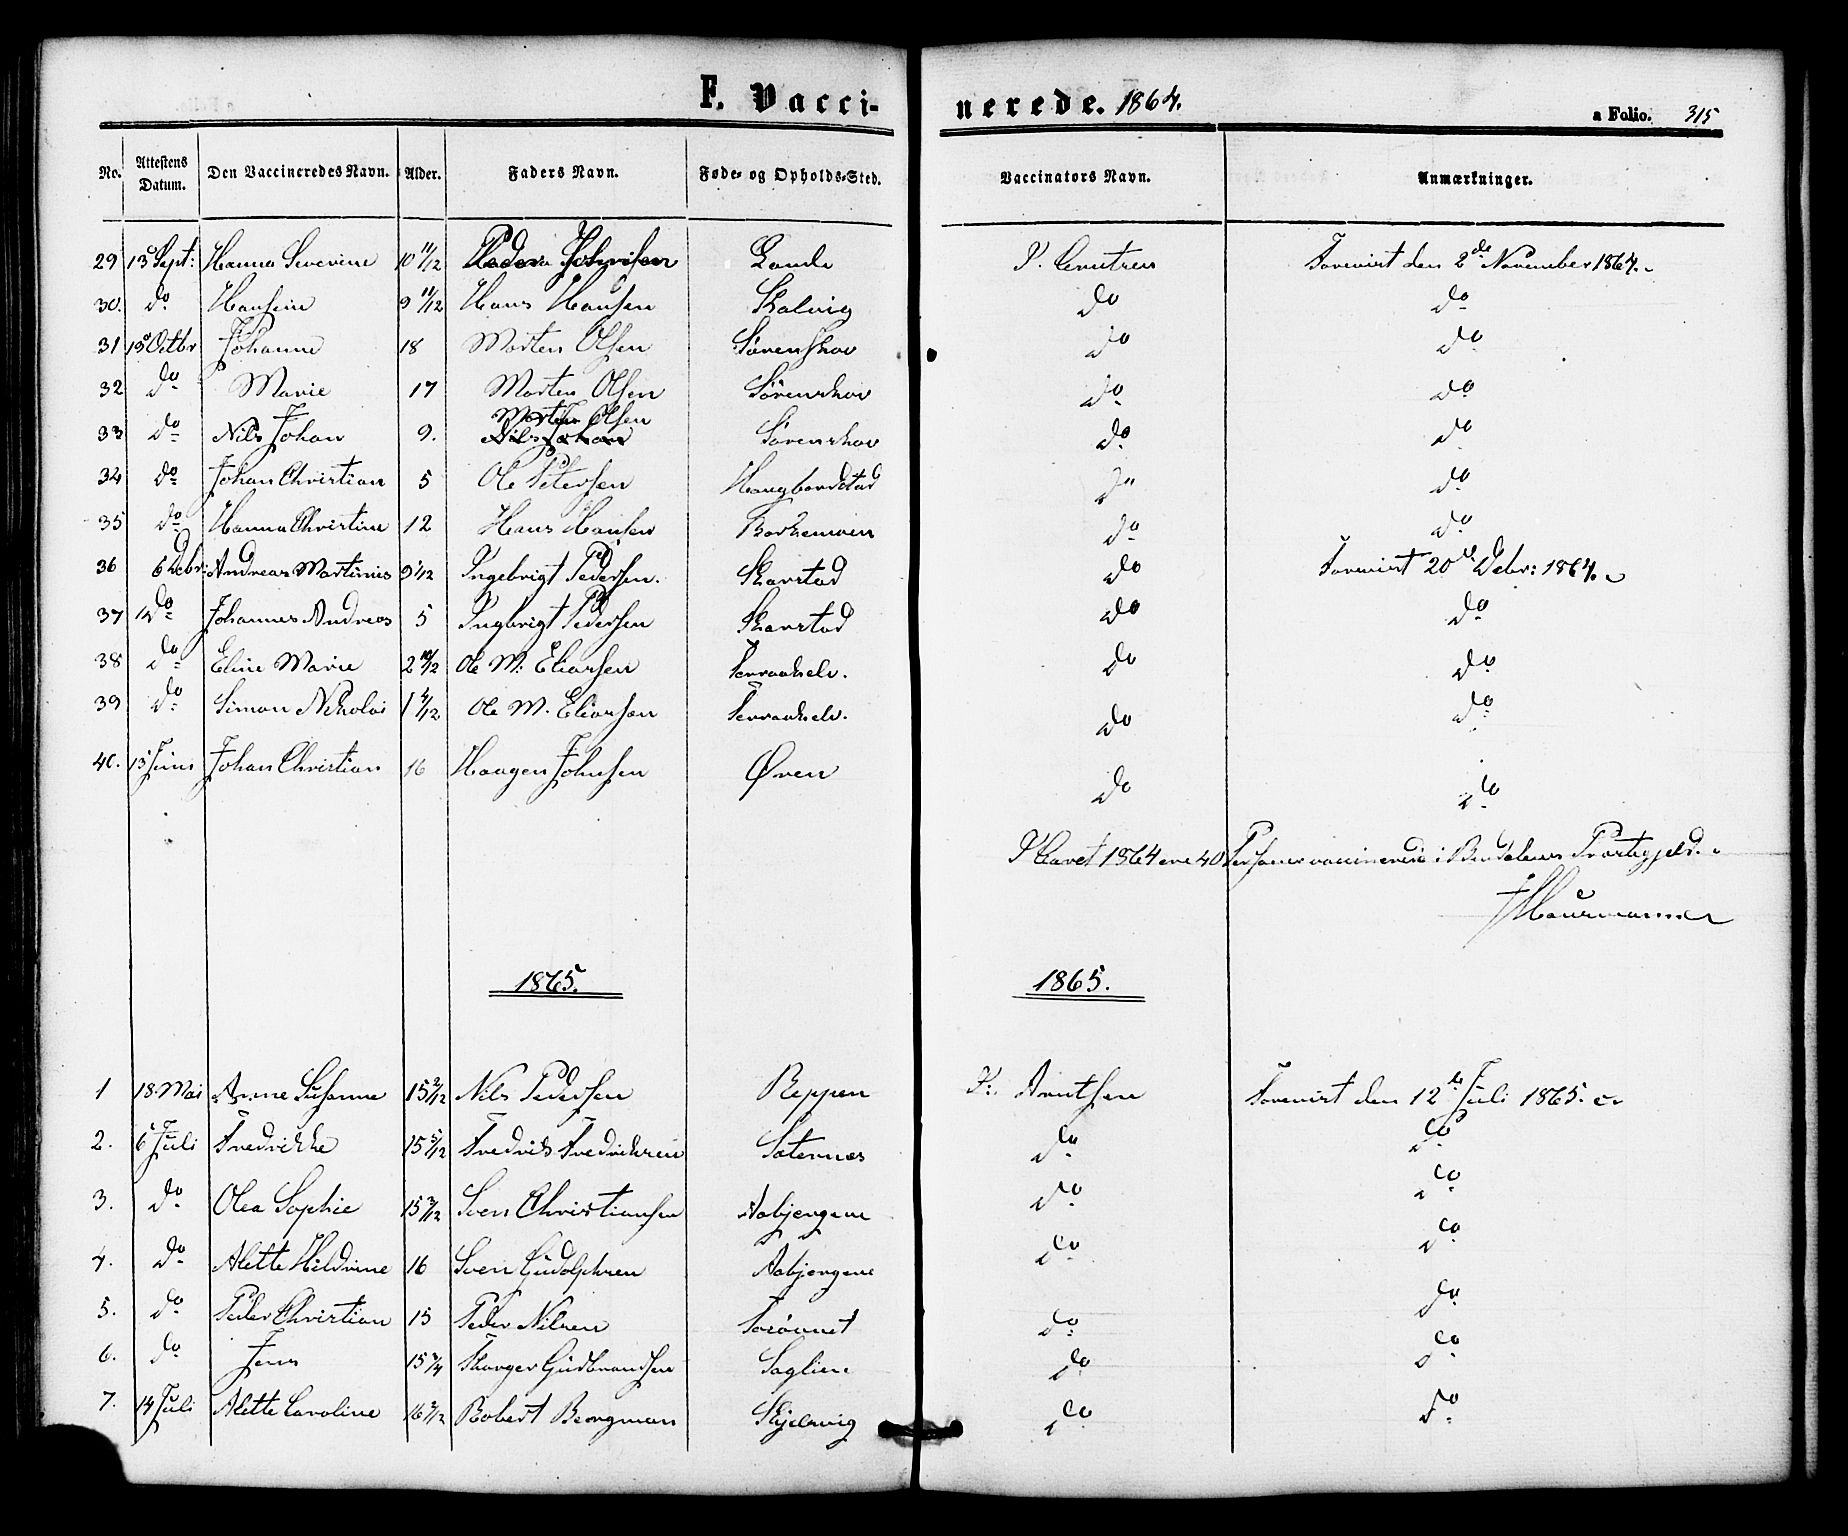 F. Vacci-nerede. 1864. a Folio. 315
No. Attestens Datum. Den Vaccineredes Navn. Alder. Faders Navn. Føde- og Opholds-Sted. Vaccinators Navn. Anmærkninger.
29 13 Sept: Hanna Severine 10 11/12 Peder Johnsen Lande P. Forevist den 2de November 1864.
30. do Hansine 9 11/12 Hans Hansen Skalvig do do
31 13 Octbr Johanne 18 Morten Olsen Sørenshov do do
32 do Marie 17 Morten Olsen Sørenshov do do
Morten Olsen
33 do Nils Johan 9. Nils Johan Sørenshov do do
34 do Johan Christian 5 Ole Petersen Hongbardstad do do
35 do Hanna Christine 12 Hans Hansen do do
36 6 Debr: Andreas Martinius 9 1/12 Ingebrigt Pedersen. Skarstad do Forevist 20de Debr: 1864.
37 do Johannes Andreas 5 Ingbrigt Pedersen Skarstad do do
38 do Eline Marie 2 10/12 Ole M: Eliassen Terraakelv. do do
39 do Simon Nikolai 1 4/12 Ole M. Eliassen Terraakelv. do do
40. 13 Juni Johan Christian 16 Haagen Johnsen Øren do do
I Aaret 1864 ere 40 Personer vaccinerede i Bindalens Præstegjeld.
1865. 1865.
1 18. Mai Anne Susanne 15 2/12 Nils Pedersen Reppen K: Knutsen Forevist den 12te Juli 1865.
2. 6 Juli Fredrikke 15 5/12 Fredrik Fredriksen Sæternæs do do
3. do Olea Sophie 15 3/12 Sven Christiansen Aabjørgene do do
4. do Alette Hildrine 16 Sven Gudolphsen Aabjørgene do do
5. do Peder Christian 15 Peder Nilsen Torøvnet do do
6. do Jens 15 3/4 Skavger Gudbrandsen Saglien do do
7. 14 Juli Alette Caroline 16 3/12 Robert Bergman Skjelvig do do